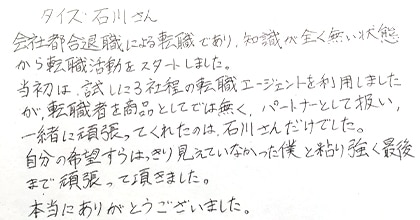 タイズ 石川さん
会社都合退職による転職であり、知識が全く無い状態
から転職活動をスタートしました。
当初は、試しに3社程の転職エージェントを利用しました
が、転職者を商品としてでは無く、パートナーとして扱い、
一緒に頑張ってくれたのは、石川さんだけでした。
自分の希望すらはっきり見えていなかった僕と粘り強く最後
まで頑張って頂きました。
本当にありがとうございました。